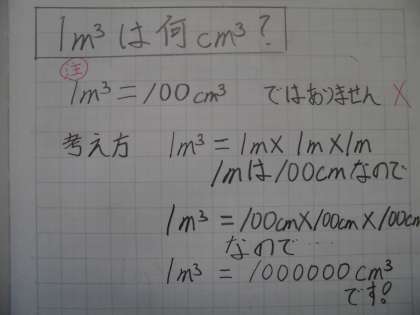 1m³は何cm³?
注
1m³=100cm³ ではありません ×
考え方 1m³=1m×1m×1m
1mは100cmなので
1m³=100cm×100cm×100cm
なので…
1m³ = 1000000cm³
です!